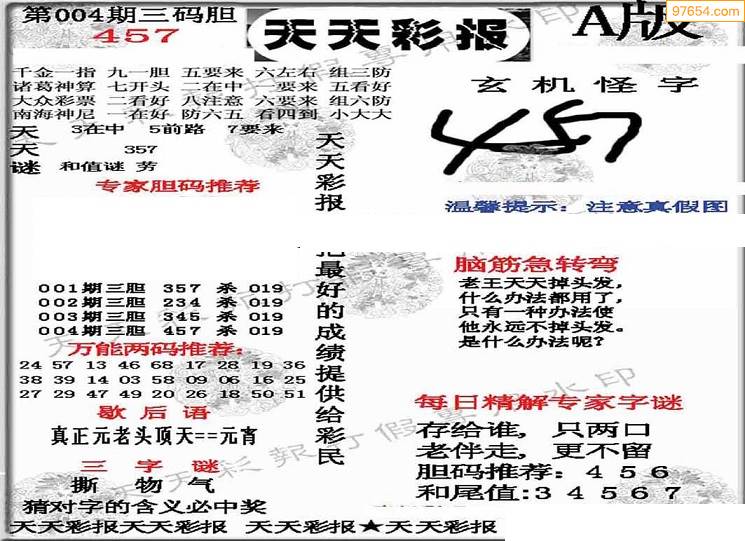 第004期三码胆
457
天天彩报
A版
97654.com
千金一指 九一胆 五要来 六左右 组三防
诸葛神算 七开头 二在中 一要来 五看好
大众彩票 二看好 八注意 六要来 组六防
南海神尼 一在好 防六五 看四到 小大大
天 3在中 5前路 7要来
天 357
谜 和值谜 芳
专家胆码推荐
001期三胆 357 杀 019
002期三胆 234 杀 019
003期三胆 345 杀 019
004期三胆 457 杀 019
万能两码推荐:
24 57 13 46 68 17 28 19 36
38 39 14 03 58 09 06 16 25
27 29 47 49 20 26 18 50 51
歇后语
真正元老头顶天==元宵
三字谜
撕 物 气
猜对字的含义必中奖
天天彩报
把最好的成绩提供给彩民
玄机怪字
457
温馨提示: 注意真假图
脑筋急转弯
老王天天掉头发,
什么办法都用了,
只有一种办法使
他永远不掉头发。
是什么办法呢?
每日精解专家字谜
存给谁, 只两口
老伴走, 更不留
胆码推荐: 4 5 6
和尾值:3 4 5 6 7
天天彩报天天彩报 天天彩报★天天彩报